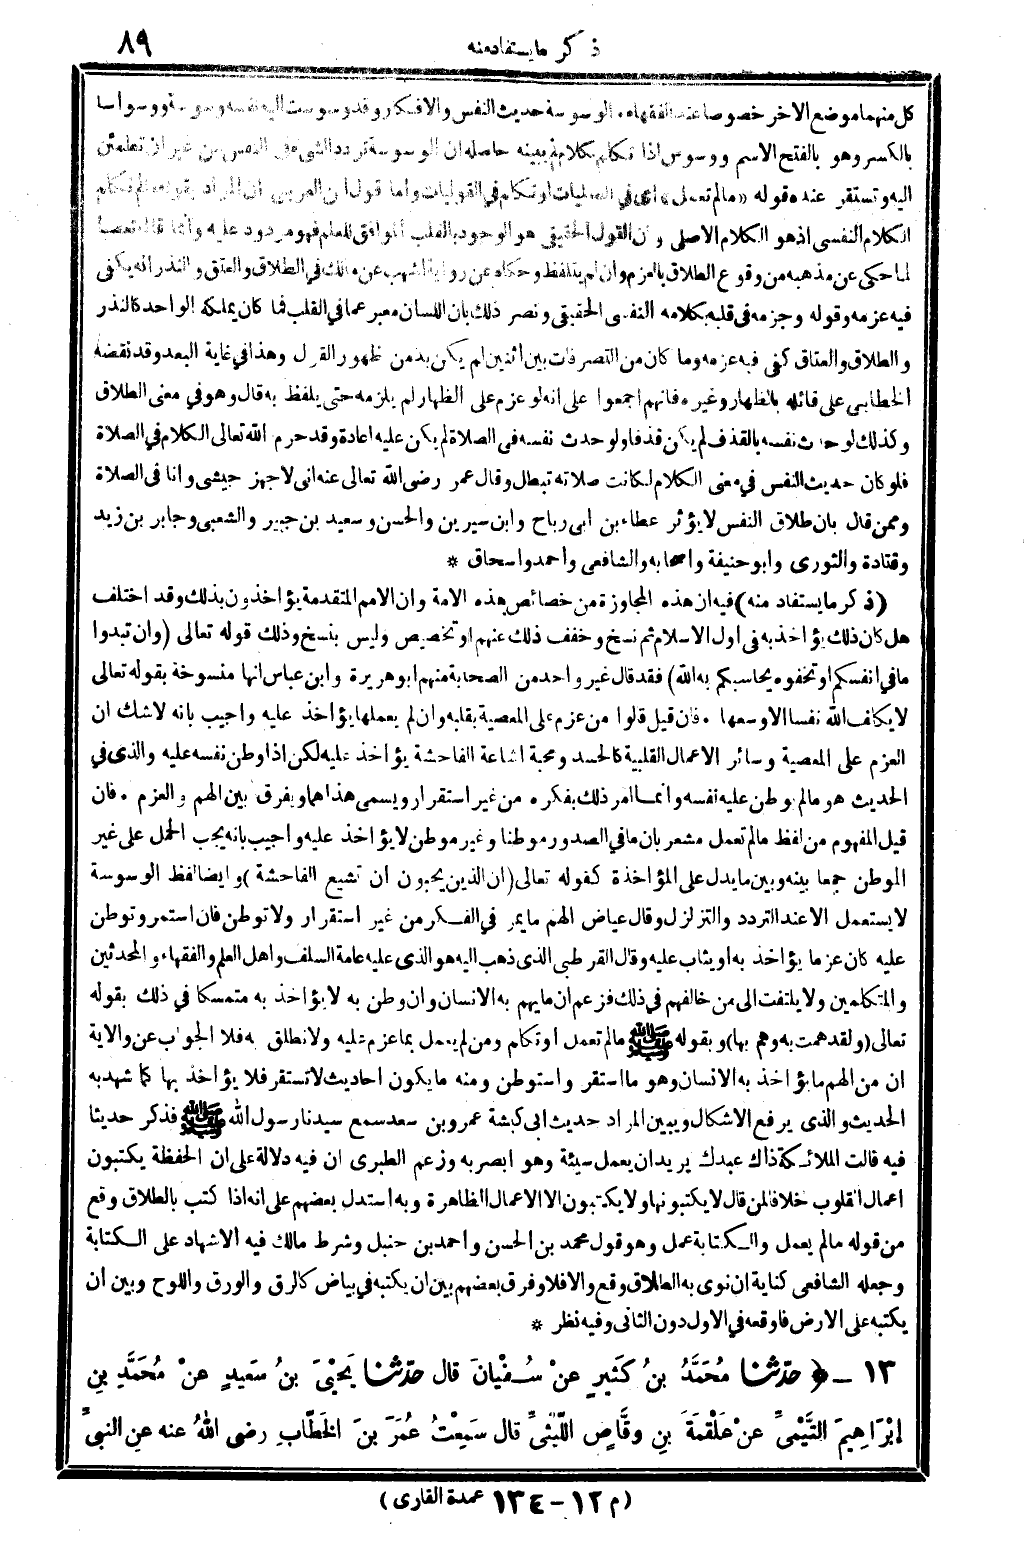 ذكر مايستفاد منه
٨٩
كل منهما موضع الاخر خصوصا عند الفقهاء . الوسوسة حديث النفس والافكار وقد وسوست اليه نفسه وسوسة ووسواسا
بالكسر وهو بالفتح الاسم ووسوس اذا تكلم بكلام لم يبينه حاصله ان الوسوسة تردد الشئ فى النفس من غير ان تطمئن
اليه وتستقر عنده قوله «مالم تعمل» اى في العمليات او تكلم في القوليات واما قول ابن العربى ان المراد بقوله مالم تكلم
الكلام النفسى اذ هو الكلام الاصلى وان القول الحقيقى هو الموجود بالقلب الموافق للعلم فهو مردود عليه وانما قاله تعصبا
لما حكى عن مذهبه من وقوع الطلاق بالعزم وان لم يتلفظ وحكاه عن رواية اشهب عن مالك في الطلاق والعتق والنذر انه يكفى
فيه عزمه وقوله وجزمه فى قلبه بكلامه النفسى الحقيقى ونصر ذلك بان اللسان معبر عما في القلب فما كان يملكه الواحد كالنذر
والطلاق والعتاق كفى فيه عزمه وما كان من التصرفات بين اثنين لم يكن بد من ظهور القول وهذا في غاية البعد وقد نقضه
الخطابى على قائله بالظهار وغيره فانهم اجمعوا على انه لو عزم على الظهار لم يلزمه حتى يلفظ به قال وهو في معنى الطلاق
وكذلك لو حدث نفسه بالقذف لم يكن قذفا ولو حدث نفسه فى الصلاة لم يكن عليه اعادة وقد حرم الله تعالى الكلام في الصلاة
فلو كان حديث النفس في معنى الكلام لكانت صلاته تبطل وقال عمر رضى الله تعالى عنه انى لاجهز جيشى وانا فى الصلاة
وممن قال بان طلاق النفس لا يؤثر عطاء بن ابى رباح وابن سيرين والحسن وسعيد بن جبير والشعبى وجابر بن زيد
وقتادة والثورى وابو حنيفة واصحابه والشافعى وأحمد واسحاق *
(ذكر ما يستفاد منه) فيه ان هذه المجاوزة من خصائص هذه الامة وان الامم المتقدمة يؤاخذون بذلك وقد اختلف
هل كان ذلك يؤاخذ به فى أول الاسلام ثم نسخ وخفف ذلك عنهم او تخصيص وليس بنسخ وذلك قوله تعالى (وان تبدوا
ما فى انفسكم او تخفوه يحاسبكم به الله) فقد قال غير واحد من الصحابة منهم ابو هريرة وابن عباس انها منسوخة بقوله تعالى
لا يكلف الله نفسا الا وسعها . فان قيل قلوا من عزم على المعصية بقلبه وان لم يعملها يؤاخذ عليه واجيب بانه لاشك ان
العزم على المعصية وسائر الاعمال القلبية كالحسد ومحبة اشاعة الفاحشة يؤاخذ عليه لكن اذا وطن نفسه عليه والذى في
الحديث هو مالم يوطن عليه نفسه وانما امر ذلك بفكره من غير استقرار ويسمى هذا هما ويفرق بين الهم والعزم . فان
قيل المفهوم من لفظ مالم تعمل مشعر بان ما في الصدور موطنا وغير موطن لا يؤاخذ عليه واجيب بانه يجب الحمل على غير
الموطن جمعا بينه وبين ما يدل على المؤاخذة كقوله تعالى (ان الذين يحبون ان تشيع الفاحشة) وايضا لفظ الوسوسة
لا يستعمل الا عند التردد والتزلزل وقال عياض الهم ما يمر في الفكر من غير استقرار ولا توطن فان استمر وتوطن
عليه كان عزما يؤاخذ به او يثاب عليه وقال القرطبى الذى ذهب اليه هو الذى عليه عامة السلف واهل العلم والفقهاء والمحدثين
والمتكلمين ولا يلتفت الى من خالفهم في ذلك فزعم ان ما يهم به الانسان وان وطن به لا يؤاخذ به متمسكا في ذلك بقوله
تعالى (ولقد همت به وهم بها) وبقوله ﷺ مالم تعمل او تكلم ومن لم يعمل بما عزم عليه ولا نطلق به فلا الجواب عن والاية
ان من الهم ما يؤاخذ به الانسان وهو ما استقر واستوطن ومنه ما يكون احاديث لا تستقر فلا يؤاخذ بها كما شهد به
الحديث والذى يرفع الاشكال ويبين المراد حديث ابى كبشة عمرو بن سعد سمع سيدنا رسول الله ﷺ فذكر حديثا
فيه قالت الملائكة ذاك عبدك يريد ان يعمل سيئة وهو ابصر به وزعم الطبرى ان فيه دلالة على ان الحفظة يكتبون
اعمال القلوب خلافا لمن قال لا يكتبونها ولا يكتبون الا الاعمال الظاهرة وبه استدل بعضهم على انه اذا كتب بالطلاق وقع
من قوله مالم يعمل والكتابة عمل وهو قول محمد بن الحسن واحمد بن حنبل وشرط مالك فيه الاشهاد على الكتابة
وجعله الشافعى كناية ان نوى به الطلاق وقع والافلا وفرق بعضهم بين ان يكتبه في بياض كالرق والورق واللوح وبين ان
يكتبه على الارض فاوقعه في الاول دون الثانى وفيه نظر *
١٣ ـ ﴿ حَدَّثَنا مُحَمَّدُ بنُ كَثِيرٍ عنْ سُفْيانَ قال حَدَّثنا يَحْيَى بنُ سَعِيدٍ عنْ مُحَمَّدِ بنِ
إِبْرَاهِيمَ التَّيْمِىِّ عنْ عَلْقَمَةَ بنِ وقَّاصٍ اللَّيْثِىِّ قال سَمِعْتُ عُمَرَ بنَ الخَطَّابِ رضى اللهُ عنه عنِ النبىِّ
(م ١٢ - ١٣٤ عمدة القارى)